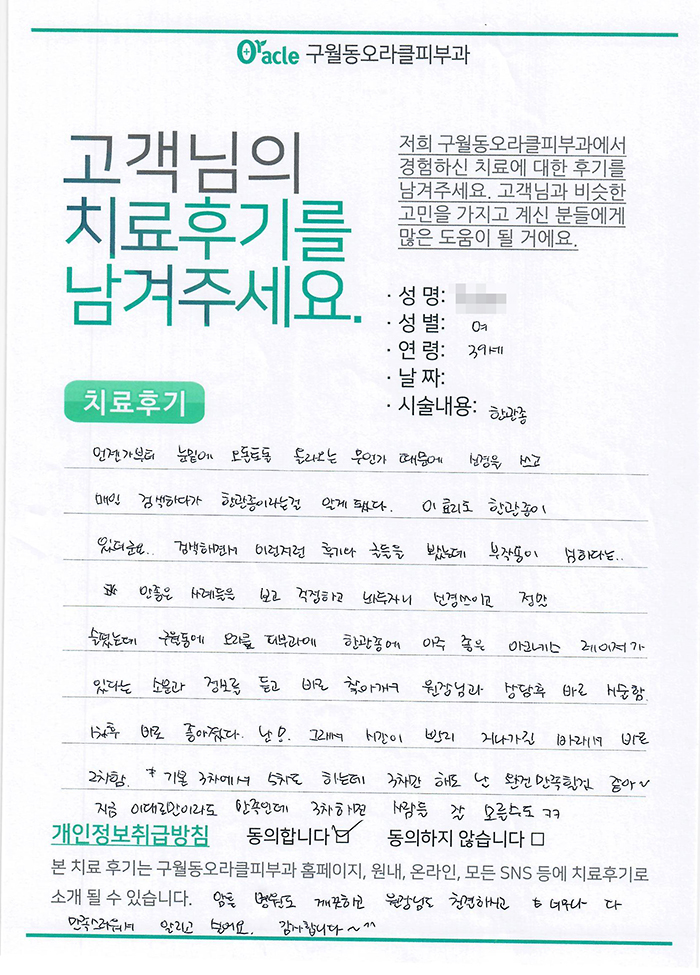 Oracle 구월동오라클피부과
고객님의
치료후기를
남겨주세요.
저희 구월동오라클피부과에서
경험하신 치료에 대한 후기를
남겨주세요. 고객님과 비슷한
고민을 가지고 계신 분들에게
많은 도움이 될 거에요.
· 성 명:
· 성 별: 여
· 연 령: 39세
· 날 짜:
· 시술내용: 한관종
치료후기
언젠가부터 눈밑에 오돌토돌 올라오는 무언가 때문에 신경을 쓰고
매일 검색하다가 한관종이라는걸 알게 됐다. 이효리도 한관종이
있더군요.. 검색하면서 이런저런 후기나 글들을 봤는데 부작용이 심하다는..
안좋은 사례들을 보고 걱정하고 놔두자니 신경쓰이고 정말
슬펐는데 구월동에 오라클 피부과에 한관종에 아주 좋은 아그네스 레이져가
있다는 소문과 정보를 듣고 바로 찾아가서 원장님과 상담후 바로 시술함.
1차후 바로 좋아졌다. 난 그래서 시간이 빨리 지나가길 바래서 바로
2차함. * 기본 3차에서 5차도 하는데 3차만 해도 난 완전만족할것 같아~
지금 이대로만이라도 만족인데 3차하면 사람들 잘 모를수도 ㅋㅋ
개인정보취급방침 동의합니다 ☑ 동의하지 않습니다 □
본 치료 후기는 구월동오라클피부과 홈페이지, 원내, 온라인, 모든 SNS 등에 치료후기로
소개 될 수 있습니다. 암튼 병원도 깨끗하고 원장님도 친절하시고 너무나 다
만족스러워서 알리고 싶어요. 감사합니다~^^